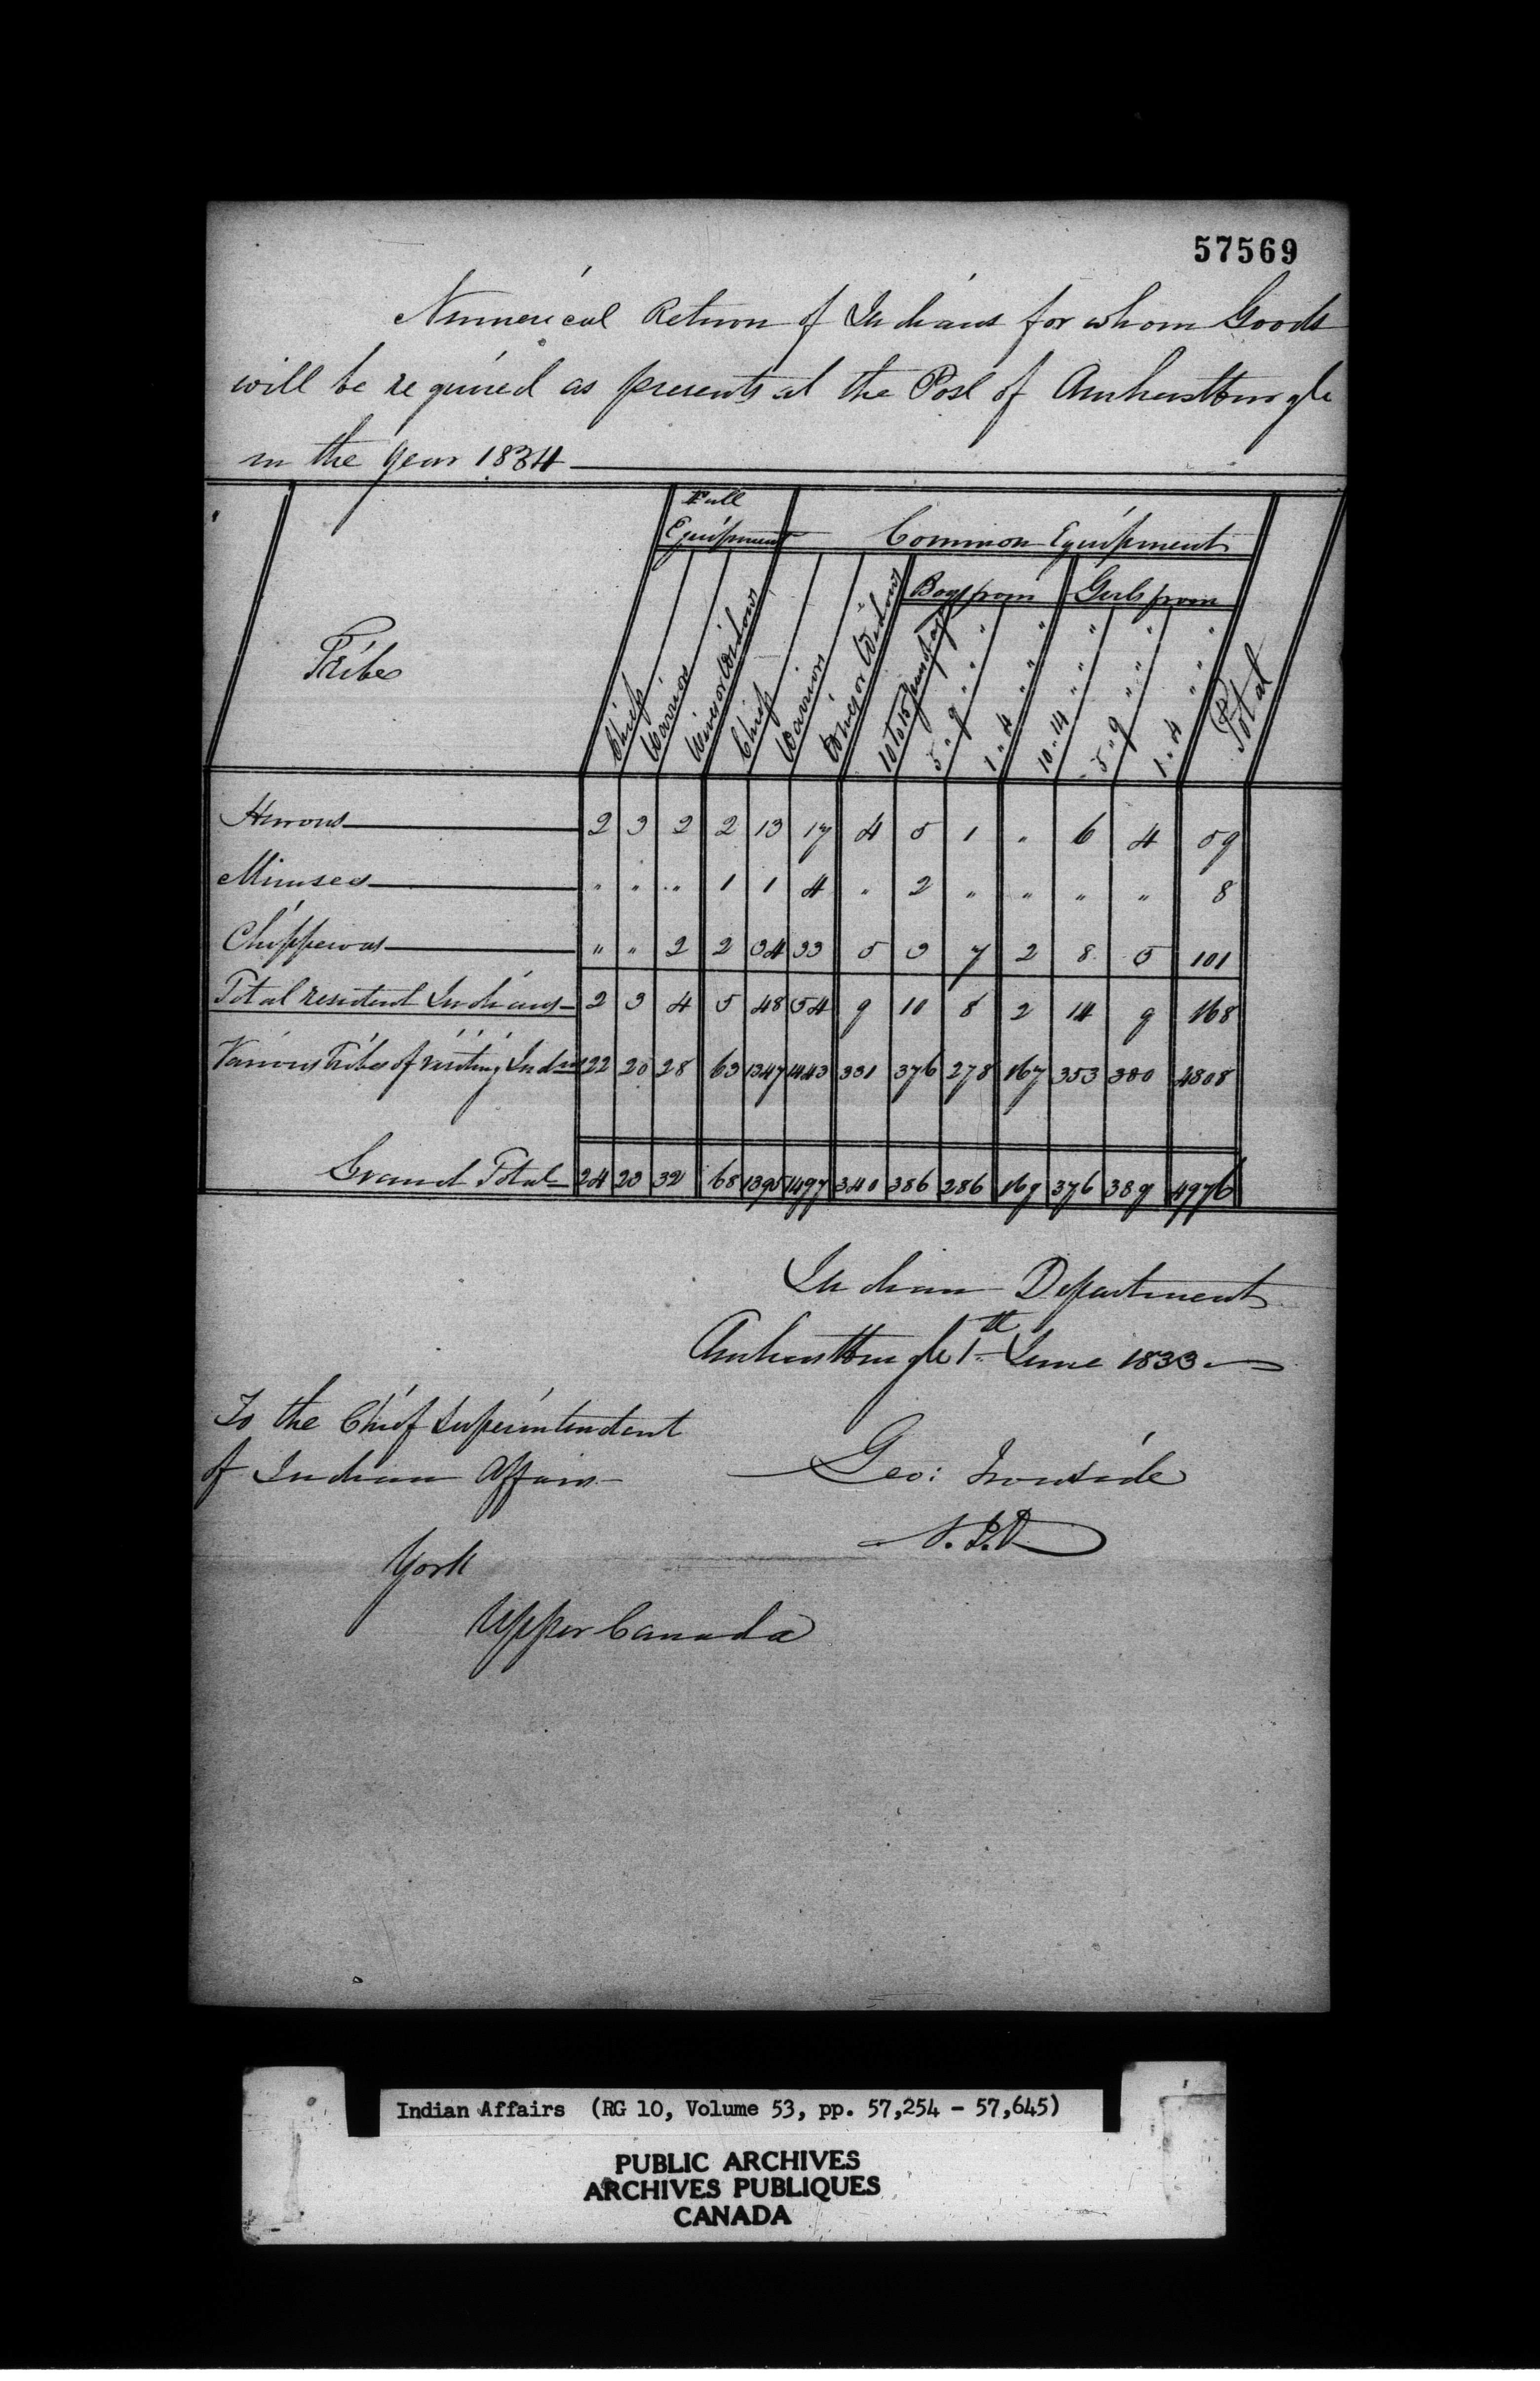 57569
Numerical Return of Indians for whom Goods
will be required as presents at the Post of Amherstburgh
in the year 1834
Full
Equipment
Common Equipment
Boys from
Girls from
Tribe
Chiefs
Warriors
Wives or Widows
Chiefs
Warriors
Wives or Widows
10 to 15 years of age
5 " 9 " "
1 " 4 " "
10 " 14 " "
5 " 9 " "
1 " 4 " "
Total
Hurons 2 3 2 2 13 17 4 5 1 " 6 4 59
Munsees " " " 1 1 4 " 2 " " " " 8
Chippewas " " 2 2 34 33 5 3 7 2 8 5 101
Total resident Indians 2 3 4 5 48 54 9 10 8 2 14 9 168
Various Tribes of visiting Inds 22 20 28 63 1347 1443 331 376 278 167 353 380 4808
Grand Total 24 23 32 68 1395 1497 340 386 286 169 376 389 4976
Indian Department
Amherstburgh 1th June 1833
To the Chief Superintendent
of Indian Affairs
Geo: Ironside
York
Upper Canada
Indian Affairs (RG 10, Volume 53, pp. 57,254 - 57,645)
PUBLIC ARCHIVES
ARCHIVES PUBLIQUES
CANADA